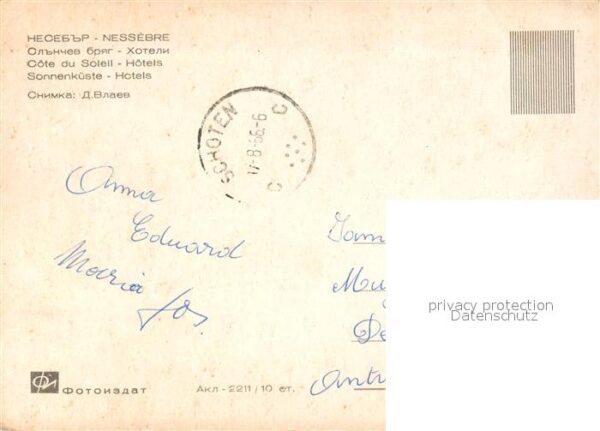 НЕСЕБЪР - NESSÈBRE
Слънчев бряг - Хотели
Côte du Soleil - Hôtels
Sonnenküste - Hotels
Снимка: Д.Влаев
SCHOTEN
C C
17-8-66-6
Anna
Eduard
Maria
Jos.
Mu
De
Antw
privacy protection
Datenschutz
Фотоиздат
Акл - 2211 / 10 ст.